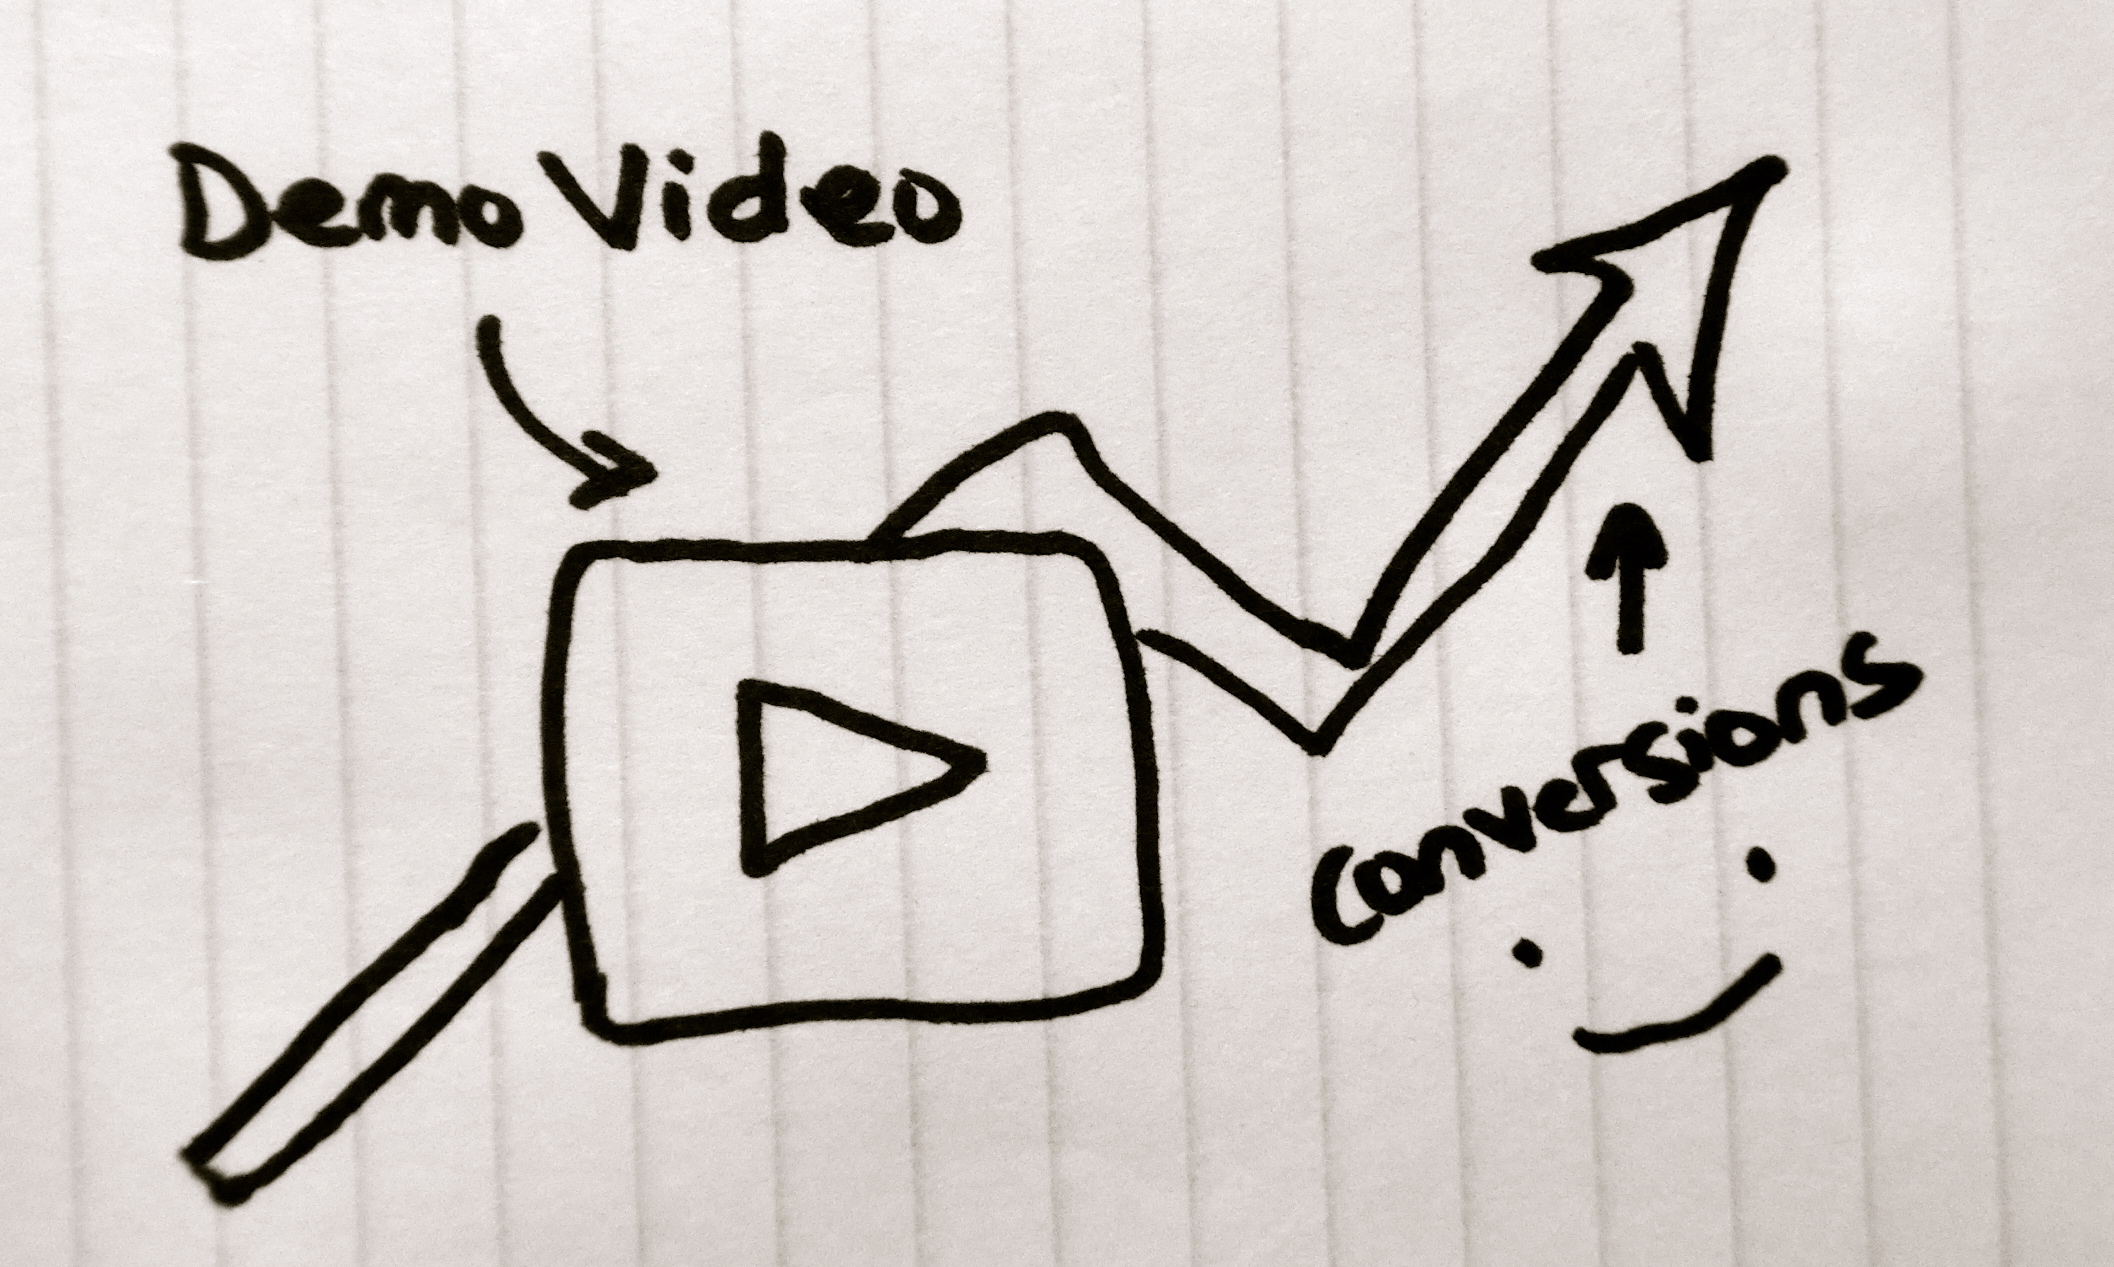 Demo Video
Conversions